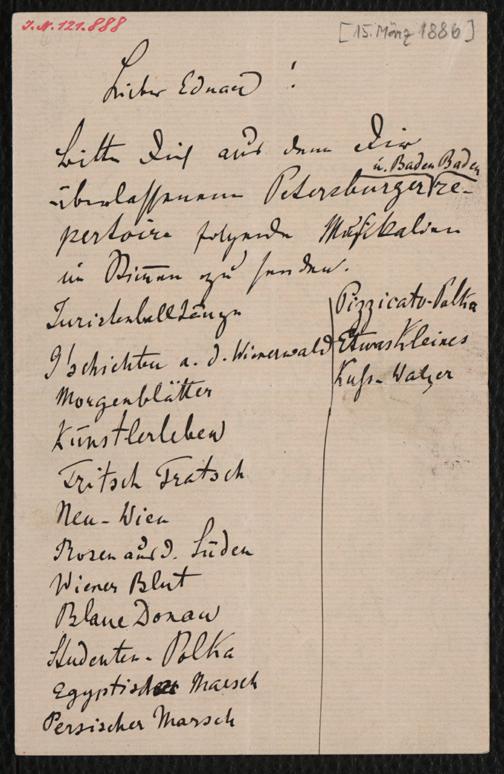 J.N. 121.888
[15. März 1886]
Lieber Eduard!
Bitte Dich aus dem Dir
u. Baden Baden
überlassenem Petersburger re-
pertoire folgende Musikalien
in Stimmen zu senden.
Juristenballtänze
G'schichten a. d. Wienerwald
Morgenblätter
Künstlerleben
Tritsch Tratsch
Neu-Wien
Rosen aus d. Süden
Wiener Blut
Blaue Donau
Studenten-Polka
Egyptischer Marsch
Persischer Marsch
Pizzicato-Polka
Etwas Kleines
Kuss-Walzer